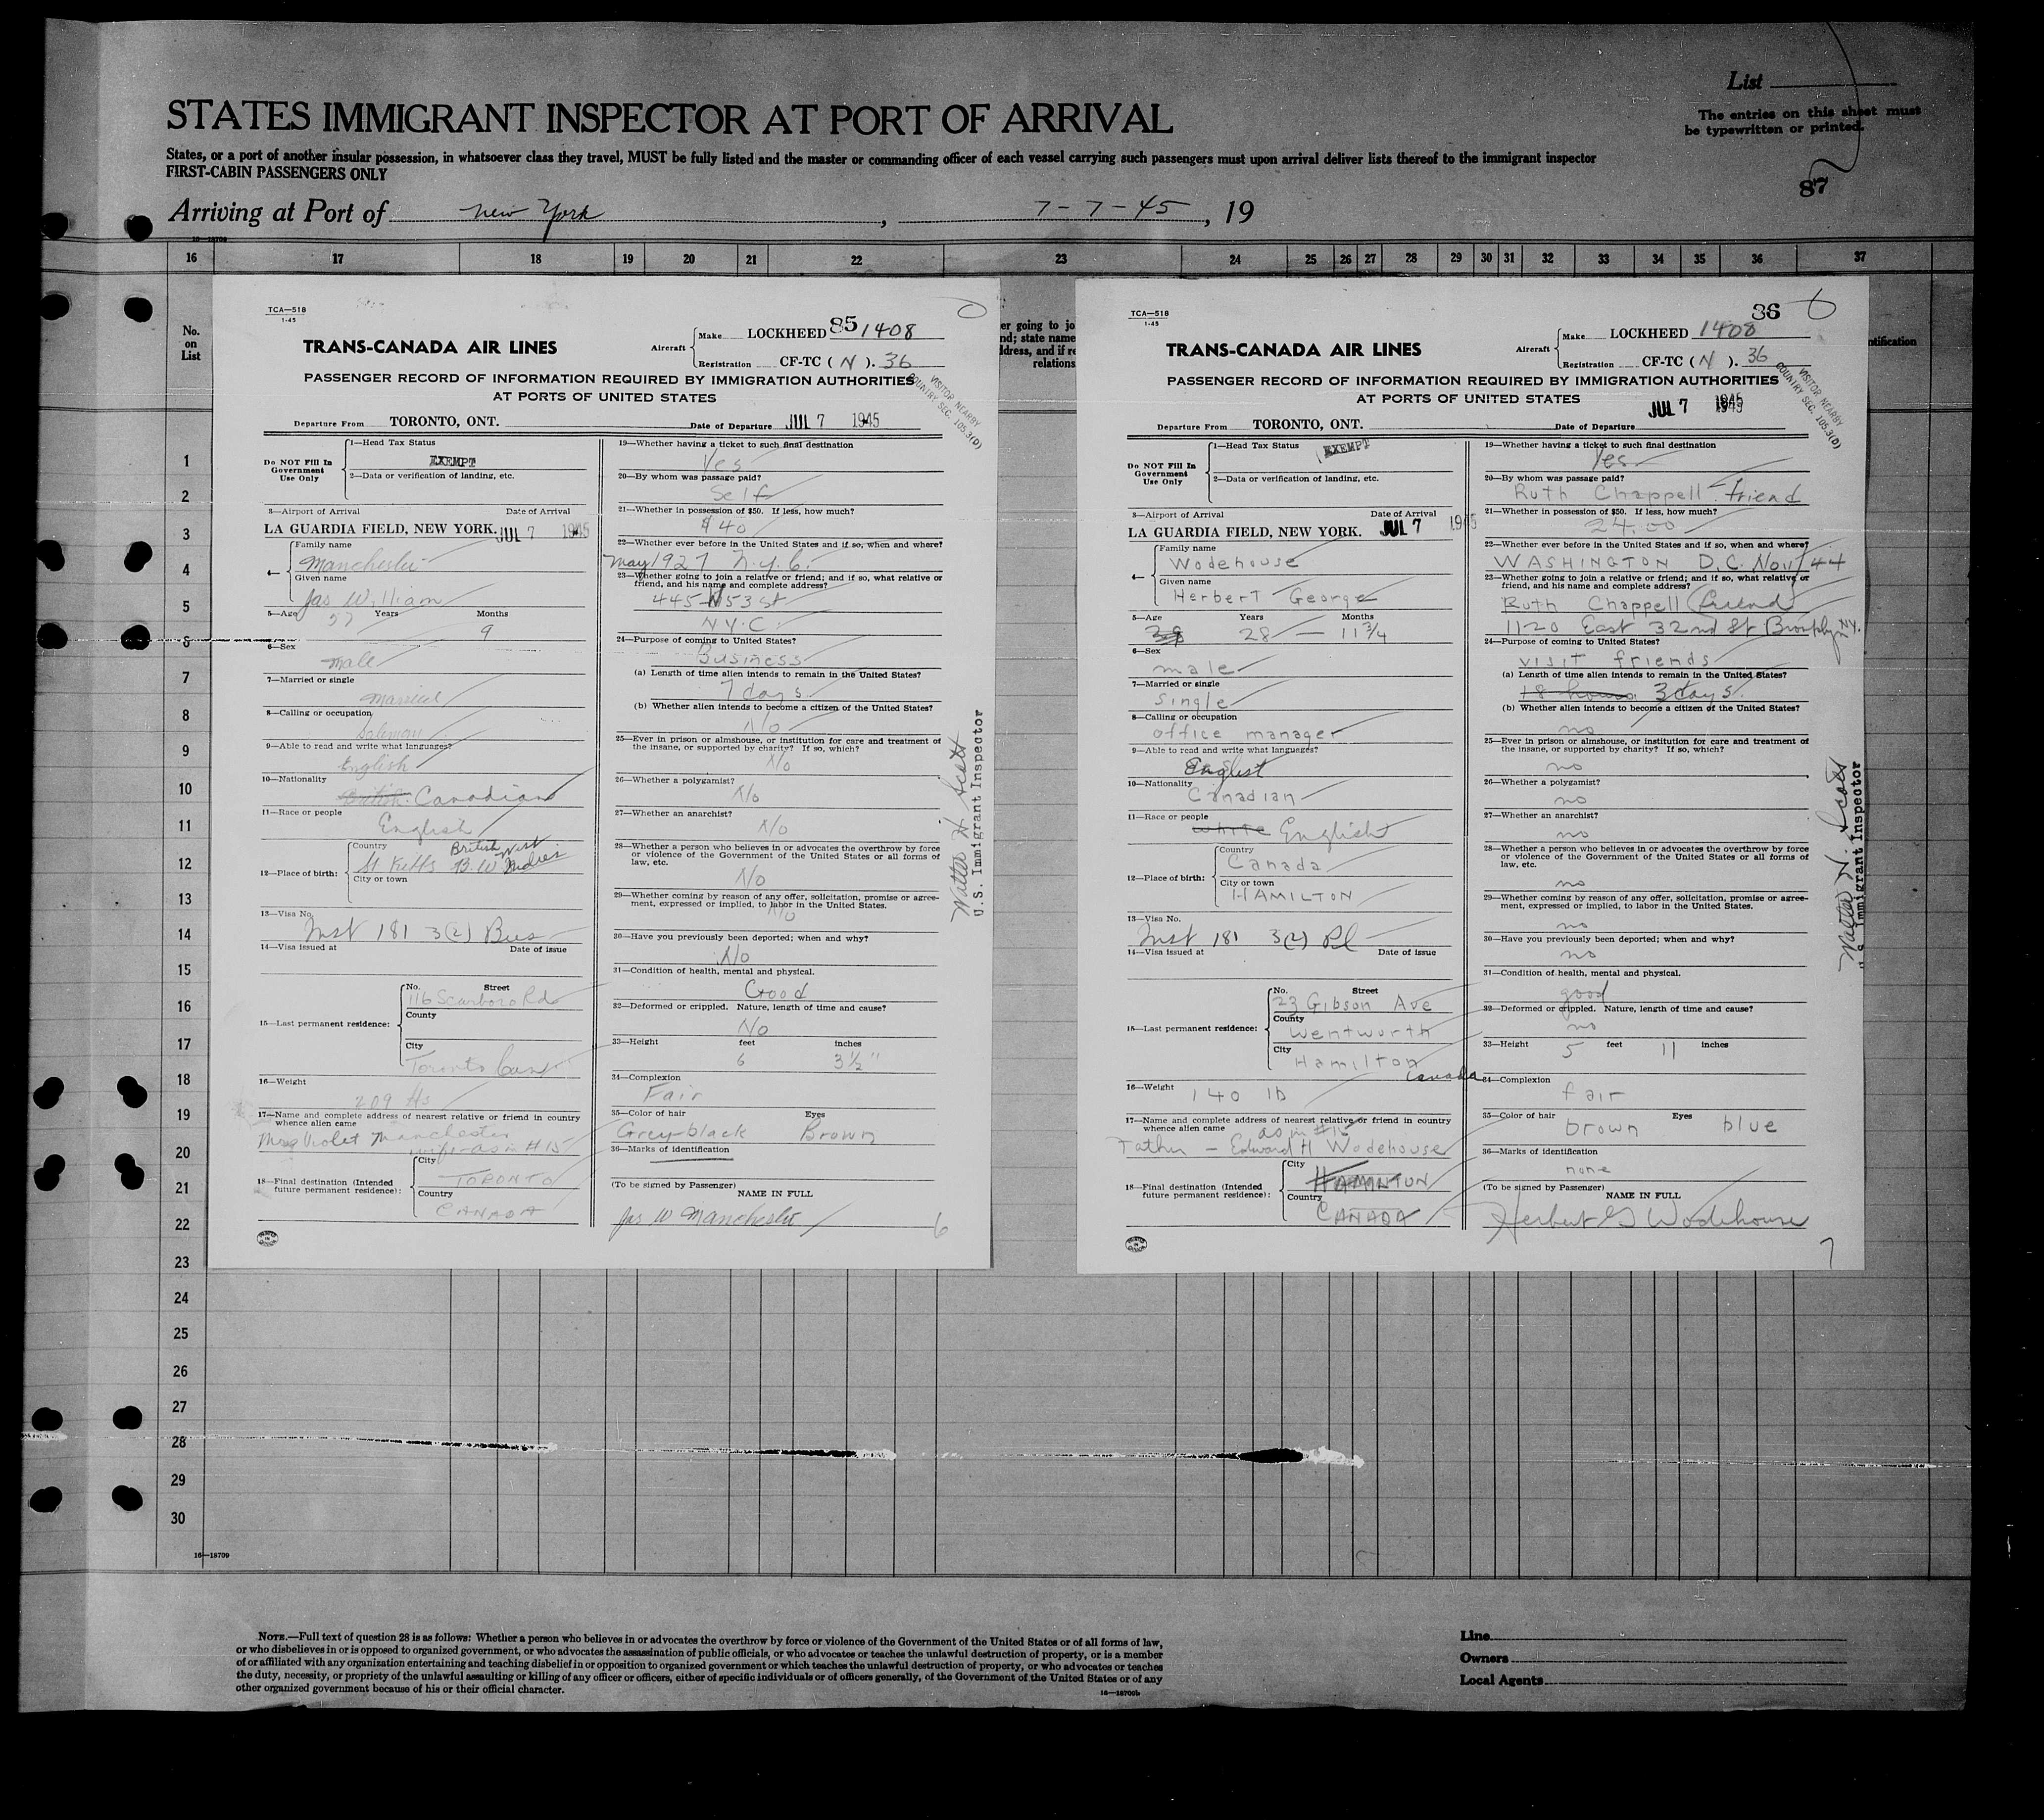 List
The entries on this sheet must
be typewritten or printed.
STATES IMMIGRANT INSPECTOR AT PORT OF ARRIVAL
States, or a port of another insular possession, in whatsoever class they travel, MUST be fully listed and the master or commanding officer of each vessel carrying such passengers must upon arrival deliver lists thereof to the immigrant inspector
FIRST-CABIN PASSENGERS ONLY
87
Arriving at Port of New York, 7-7-45, 19
16—18709
16 17 18 19 20 21 22 23 24 25 26 27 28 29 30 31 32 33 34 35 36 37
No.
on
List
er going to jo
nd; state name
ldress, and if re
relations
ntification
1
2
3
4
5
6
7
8
9
10
11
12
13
14
15
16
17
18
19
20
21
22
23
24
25
26
27
28
29
30
16—18709
TCA—518
1-45
TRANS-CANADA AIR LINES
Aircraft
Make LOCKHEED 85 1408
Registration CF-TC ( N ). 36
PASSENGER RECORD OF INFORMATION REQUIRED BY IMMIGRATION AUTHORITIES
AT PORTS OF UNITED STATES
VISITOR NEARBY
COUNTRY SEC. 105.3(D)
Departure From TORONTO, ONT. Date of Departure JUL 7 1945
Do NOT Fill In
Government
Use Only
1—Head Tax Status
EXEMPT
2—Data or verification of landing, etc.
3—Airport of Arrival Date of Arrival
LA GUARDIA FIELD, NEW YORK. JUL 7 1945
4—
Family name
Manchester
Given name
Jas William
5—Age Years Months
57 9
6—Sex
male
7—Married or single
Married
8—Calling or occupation
Salesman
9—Able to read and write what languages?
English
10—Nationality
British Canadian
11—Race or people
English
12—Place of birth:
Country
St Kitts B.W. British West Indies
City or town
13—Visa No.
Inst 181 3(2) Bus
14—Visa issued at Date of issue
15—Last permanent residence:
No. Street
116 Scarboro Rd
County
City
Toronto Can
16—Weight
209 lbs
17—Name and complete address of nearest relative or friend in country
whence alien came
Mrs Violet Manchester
wife-as in #15
18—Final destination (Intended
future permanent residence):
City
TORONTO
Country
CANADA
19—Whether having a ticket to such final destination
Yes
20—By whom was passage paid?
Self
21—Whether in possession of $50. If less, how much?
$40
22—Whether ever before in the United States and if so, when and where?
May 1927 N.Y.C.
23—Whether going to join a relative or friend; and if so, what relative or
friend, and his name and complete address?
445 W 53 St
N.Y.C.
24—Purpose of coming to United States?
Business
(a) Length of time alien intends to remain in the United States?
7 days
(b) Whether alien intends to become a citizen of the United States?
No
25—Ever in prison or almshouse, or institution for care and treatment of
the insane, or supported by charity? If so, which?
No
26—Whether a polygamist?
No
27—Whether an anarchist?
No
28—Whether a person who believes in or advocates the overthrow by force
or violence of the Government of the United States or all forms of
law, etc.
No
29—Whether coming by reason of any offer, solicitation, promise or agree-
ment, expressed or implied, to labor in the United States.
No
30—Have you previously been deported; when and why?
No
31—Condition of health, mental and physical.
Good
32—Deformed or crippled. Nature, length of time and cause?
No
33—Height feet inches
6 3½"
34—Complexion
Fair
35—Color of hair Eyes
Grey-black Brown
36—Marks of identification
(To be signed by Passenger)
NAME IN FULL
Jas W Manchester
6
Walter N. Scott
U.S. Immigrant Inspector
TCA—518
1-45
86
TRANS-CANADA AIR LINES
Aircraft
Make LOCKHEED 1408
Registration CF-TC ( N ). 36
PASSENGER RECORD OF INFORMATION REQUIRED BY IMMIGRATION AUTHORITIES
AT PORTS OF UNITED STATES
VISITOR NEARBY
COUNTRY SEC. 105.3(D)
Departure From TORONTO, ONT. Date of Departure JUL 7 1945
Do NOT Fill In
Government
Use Only
1—Head Tax Status
EXEMPT
2—Data or verification of landing, etc.
3—Airport of Arrival Date of Arrival
LA GUARDIA FIELD, NEW YORK. JUL 7 1945
4—
Family name
Wodehouse
Given name
Herbert George
5—Age Years Months
28 28 — 11 3/4
6—Sex
male
7—Married or single
single
8—Calling or occupation
office manager
9—Able to read and write what languages?
English
10—Nationality
Canadian
11—Race or people
white English
12—Place of birth:
Country
Canada
City or town
HAMILTON
13—Visa No.
Inst 181 3(2) Pl
14—Visa issued at Date of issue
15—Last permanent residence:
No. Street
23 Gibson Ave
County
Wentworth
City
Hamilton
Canada
16—Weight
140 lb
17—Name and complete address of nearest relative or friend in country
whence alien came
as in #15
Father — Edward H Wodehouse
18—Final destination (Intended
future permanent residence):
City
HAMILTON
Country
CANADA
19—Whether having a ticket to such final destination
Yes
20—By whom was passage paid?
Ruth Chappell - friend
21—Whether in possession of $50. If less, how much?
24.00
22—Whether ever before in the United States and if so, when and where?
WASHINGTON D.C. Nov/44
23—Whether going to join a relative or friend; and if so, what relative or
friend, and his name and complete address?
Ruth Chappell (friend)
1120 East 32nd St Brooklyn N.Y.
24—Purpose of coming to United States?
visit friends
(a) Length of time alien intends to remain in the United States?
18 hours 3 days
(b) Whether alien intends to become a citizen of the United States?
no
25—Ever in prison or almshouse, or institution for care and treatment of
the insane, or supported by charity? If so, which?
no
26—Whether a polygamist?
no
27—Whether an anarchist?
no
28—Whether a person who believes in or advocates the overthrow by force
or violence of the Government of the United States or all forms of
law, etc.
no
29—Whether coming by reason of any offer, solicitation, promise or agree-
ment, expressed or implied, to labor in the United States.
no
30—Have you previously been deported; when and why?
no
31—Condition of health, mental and physical.
good
32—Deformed or crippled. Nature, length of time and cause?
no
33—Height 5 feet 11 inches
34—Complexion
fair
35—Color of hair Eyes
brown blue
36—Marks of identification
none
(To be signed by Passenger)
NAME IN FULL
Herbert G Wodehouse
7
Walter N. Scott
Immigrant Inspector
NOTE.—Full text of question 28 is as follows: Whether a person who believes in or advocates the overthrow by force or violence of the Government of the United States or of all forms of law,
or who disbelieves in or is opposed to organized government, or who advocates the assassination of public officials, or who advocates or teaches the unlawful destruction of property, or is a member
of or affiliated with any organization entertaining and teaching disbelief in or opposition to organized government or which teaches the unlawful destruction of property, or who advocates or teaches
the duty, necessity, or propriety of the unlawful assaulting or killing of any officer or officers, either of specific individuals or of officers generally, of the Government of the United States or of any
other organized government because of his or their official character.
16—18709b
Line
Owners
Local Agents